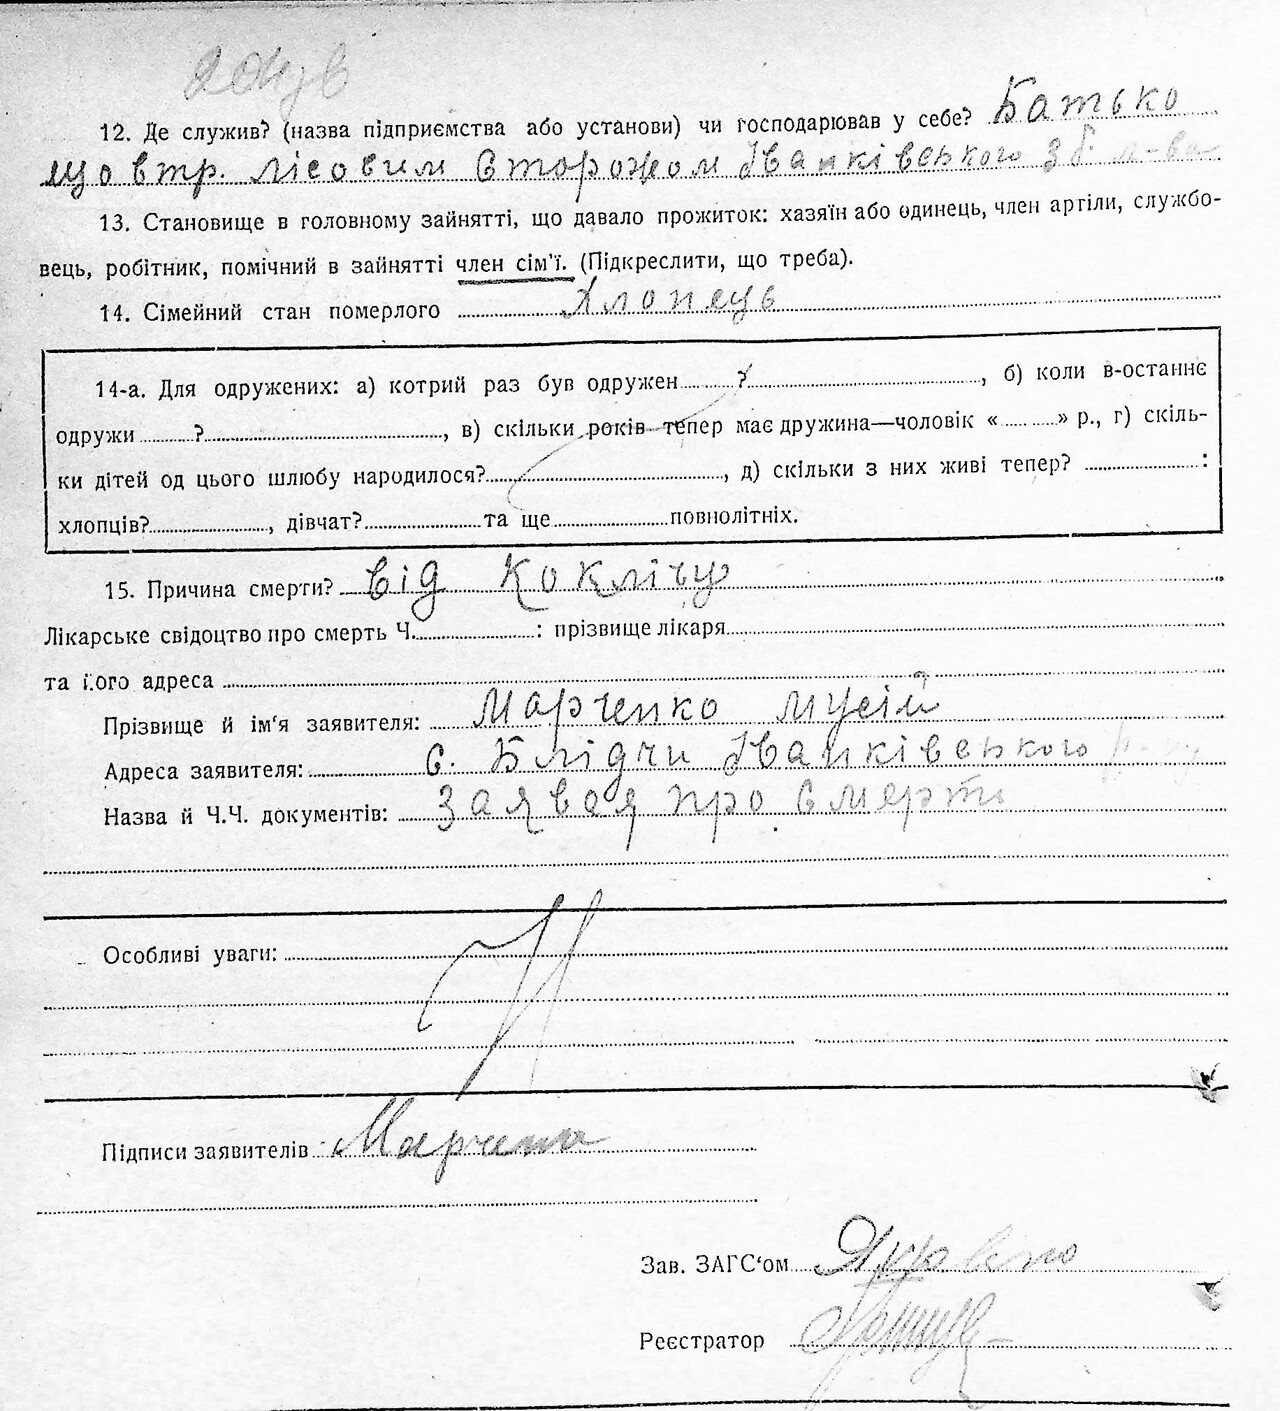 12. Де служив? (назва підприємства або установи) чи господарював у себе? Батько
що втр. лісовим сторожом Іванківського
13. Становище в головному зайнятті, що давало прожиток: хазяїн або одинець, член аргіли, службо-
вець, робітник, помічний в зайнятті член сім'ї. (Підкреслити, що треба).
14. Сімейний стан померлого хлопець
14-а. Для одружених: а) котрий раз був одружен ?, б) коли в-останнє
одружи ?, в) скільки років тепер має дружина—чоловік « » р., г) скіль-
ки дітей од цього шлюбу народилося?, д) скільки з них живі тепер? :
хлопців?, дівчат? та ще повнолітніх.
15. Причина смерти? від коклічу
Лікарське свідоцтво про смерть Ч. : прізвище лікаря
та його адреса
Прізвище й ім'я заявителя: Марченко Мусій
Адреса заявителя: с. Блідчи Іванківського
Назва й Ч.Ч. документів: заявея про смерть
Особливі уваги:
Підписи заявителів Марченко
Зав. ЗАГС'ом
Реєстратор